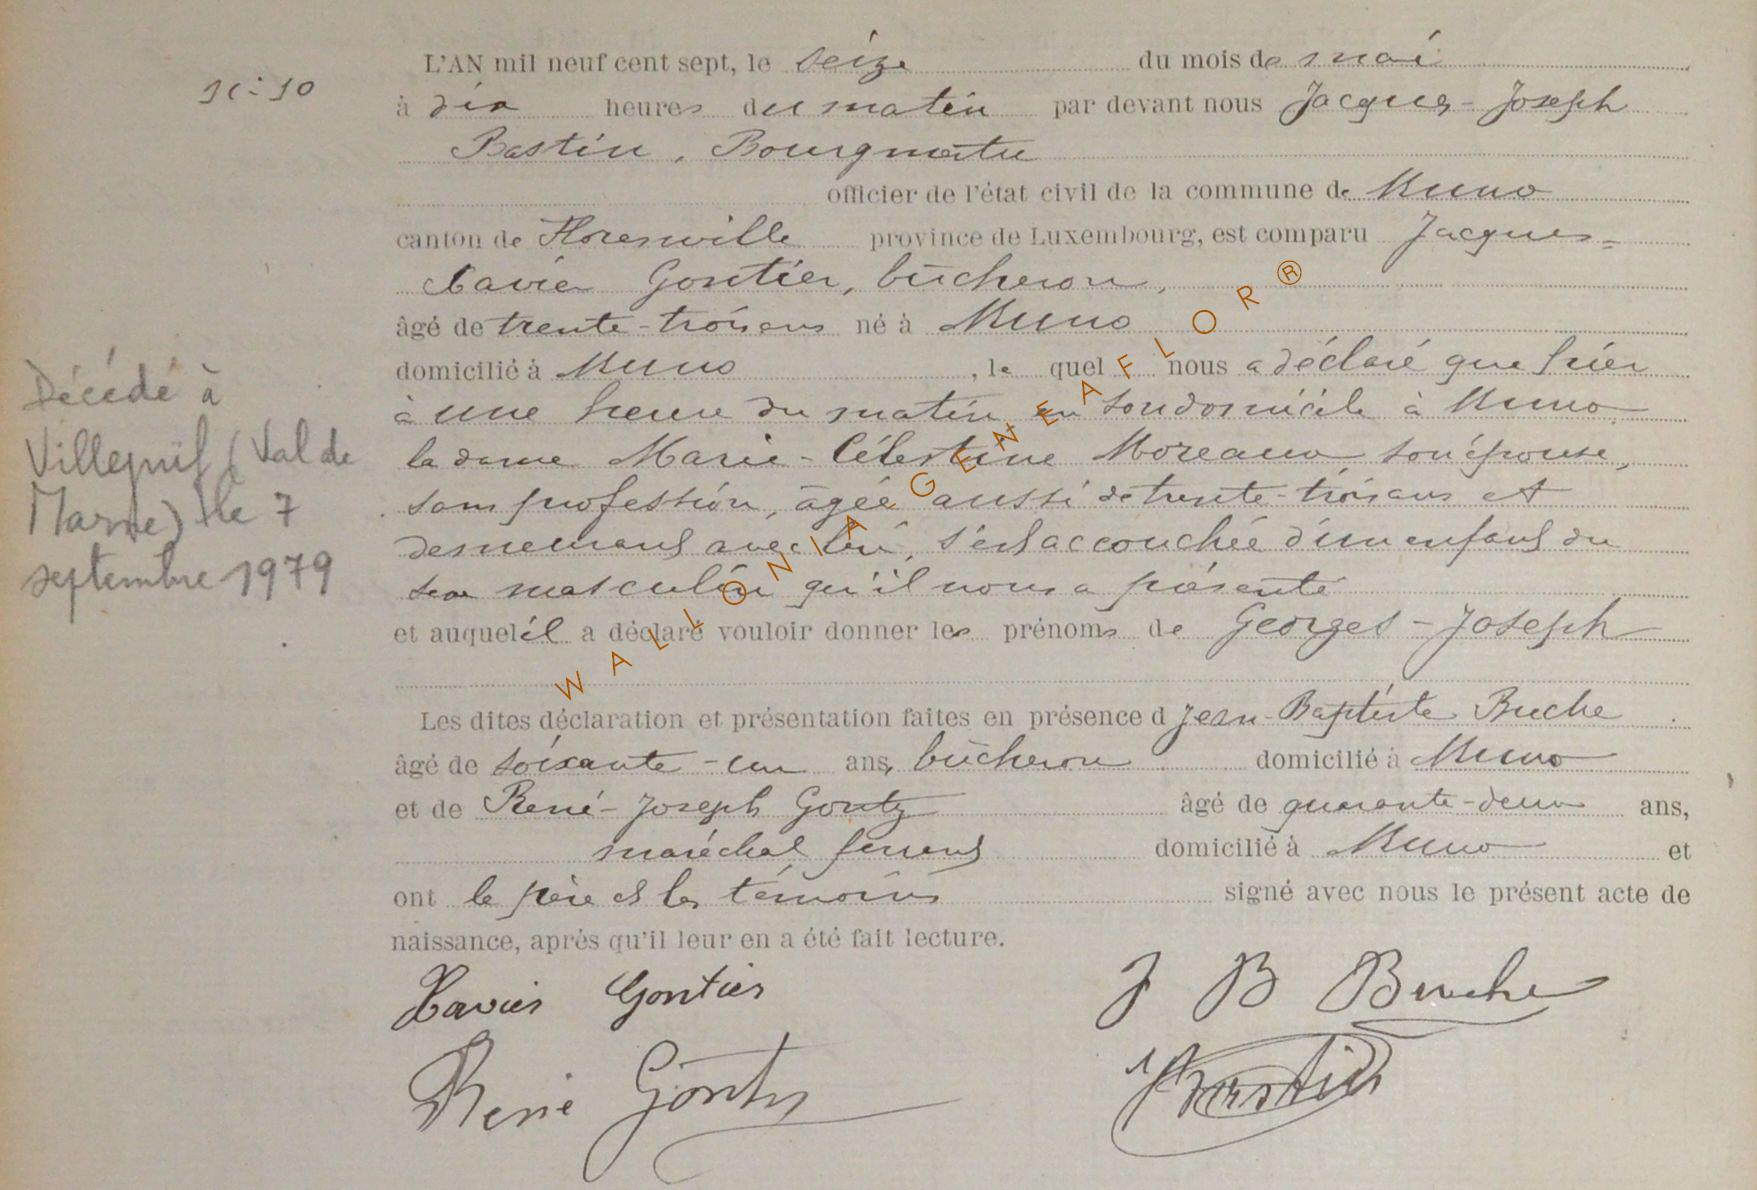 L'AN mil neuf cent sept, le seize du mois de mai
à dix heures du matin par devant nous Jacques-Joseph
Bastin, Bourgmestre
officier de l'état civil de la commune de Muno
canton de Florenville province de Luxembourg, est comparu Jacques=
Xavier Gontier, bûcheron,
âgé de trente-trois ans né à Muno
domicilié à Muno, le quel nous a déclaré que hier
à une heure du matin en son domicile à Muno
la dame Marie-Célestine Moreaux son épouse,
sans profession, âgée aussi de trente-trois ans et
demeurant avec lui, s'est accouchée d'un enfant du
sexe masculin qu'il nous a présenté
et auquel il a déclaré vouloir donner les prénoms de Georges-Joseph
Les dites déclaration et présentation faites en présence d Jean-Baptiste Buche
âgé de soixante-un ans, bûcheron domicilié à Muno
et de René-Joseph Gonty âgé de quarante-deux ans,
maréchal ferrant domicilié à Muno et
ont le père et les témoins signé avec nous le présent acte de
naissance, après qu'il leur en a été fait lecture.
Xavier Gontier J B Buche
René Gonty Bastin
Décédé à
Villejuif (Val de
Marne) le 7
septembre 1979
WALLONIA GENEAFLOR®